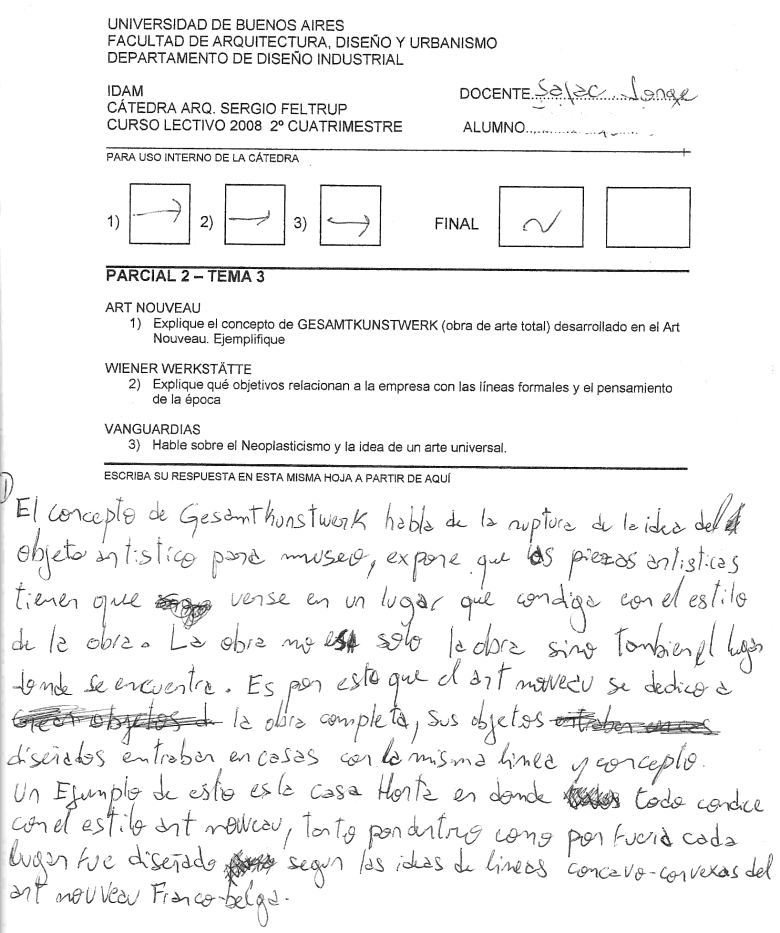 UNIVERSIDAD DE BUENOS AIRES
FACULTAD DE ARQUITECTURA, DISEÑO Y URBANISMO
DEPARTAMENTO DE DISEÑO INDUSTRIAL
IDAM
DOCENTE Salac Jorge
CÁTEDRA ARQ. SERGIO FELTRUP
CURSO LECTIVO 2008 2º CUATRIMESTRE
ALUMNO
PARA USO INTERNO DE LA CÁTEDRA
1) 2) 3) FINAL
PARCIAL 2 – TEMA 3
ART NOUVEAU
1) Explique el concepto de GESAMTKUNSTWERK (obra de arte total) desarrollado en el Art
Nouveau. Ejemplifique
WIENER WERKSTÄTTE
2) Explique qué objetivos relacionan a la empresa con las líneas formales y el pensamiento
de la época
VANGUARDIAS
3) Hable sobre el Neoplasticismo y la idea de un arte universal.
ESCRIBA SU RESPUESTA EN ESTA MISMA HOJA A PARTIR DE AQUÍ
1)
El concepto de Gesamtkunstwerk habla de la ruptura de la idea del
objeto artistico para museo, expone que las piezas artisticas
tienen que verse en un lugar que condiga con el estilo
de la obra. La obra no es solo la obra sino tambien el lugar
donde se encuentra. Es por esto que el art nouveau se dedico a
crear objetos de la obra completa, sus objetos entraban en casas
diseñados entraban en casas con la misma linea y concepto.
Un Ejemplo de esto es la casa Horta en donde todo condice
con el estilo art nouveau, tanto por dentro como por fuera cada
lugar fue diseñado segun las ideas de lineas concavo-convexas del
art nouveau Franco-belga.